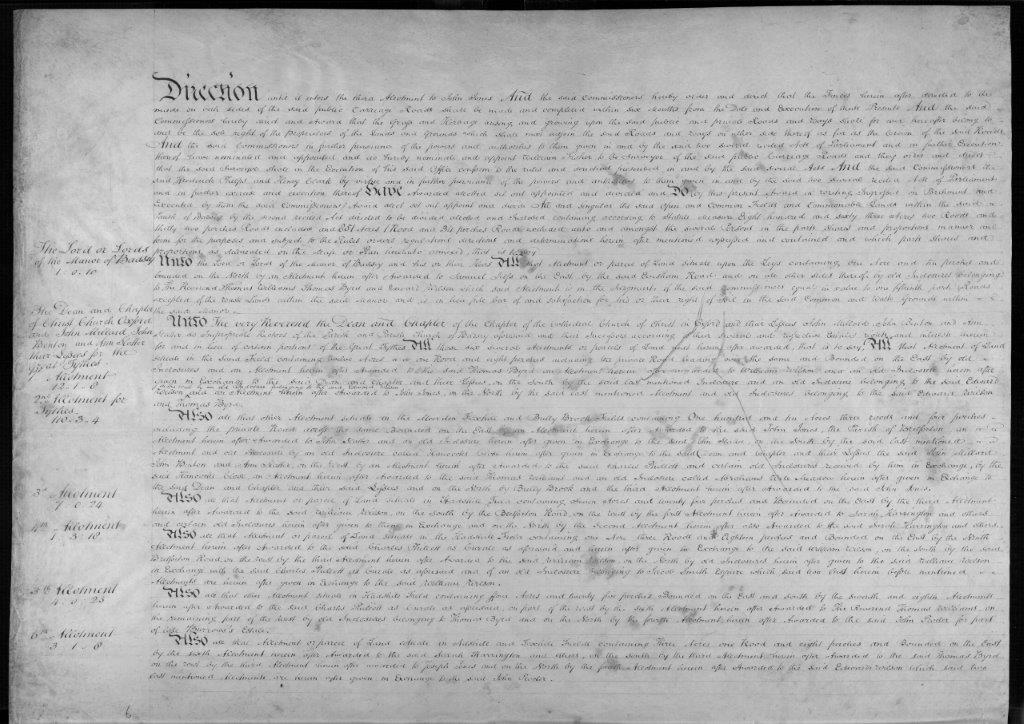 Direction until it enters the third Allotment to John Jones And the said Commissioners hereby order and direct that the Fences herein after directed to be
made on each sides of the said public Carriage Roads shall be made and completed within six Months from the Date and Execution of these Presents And the said
Commissioners hereby and Award that the Grass and Herbage arising and growing upon the said public and private Roads and Ways shall for ever hereafter belong to
and be the sole right of the Proprietors of the Lands and Grounds which shall adjoin the said Roads and Ways on either side thereof as far as the Crown of the said Roads
And the said Commissioners in further pursuance of the powers and authorities to them given in and by the said two several recited Acts of Parliament and in further Execution
thereof have nominated and appointed and do hereby nominate and appoint William Fisher to be Surveyor of the said public Carriage Roads and they order and direct
that the said Surveyor shall in the Execution of his said Office conform to the rules and in and by the said several Acts And the said Commissioners the
said and Henry in further pursuance of the powers and authorities to them given in and by the said two several recited Acts of Parliament
and in further exercise and execution thereof Have Awarded allotted set out appointed and divided and Do by this present Award in writing Ingrossed on Parchment and
Executed by them the said Commissioners Award allot set out appoint and divide All and Singular the said Open and Common Fields and Commonable Lands within the said
Parish of Badsey by the second recited Act directed to be divided allotted and Inclosed containing according to Statute Measure Eight hundred and sixty three acres two Roods and
thirty two perches Roads excluded unto and amongst the several Persons in the parts shares and proportions manner and
form for the purposes and subject to the Rules orders regulations directions and determinations herein after mentioned expressed and contained and which parts shares and
proportions as delineated on the Map or Plan hereunto annexed, that is to say
The Lord or Lords
of the Manor of Badsey
1 . 0 . 10
Unto the Lord or Lords of the Manor of Badsey and his or their Heirs All that Allotment or parcel of Land situate upon the Leys containing One Acre and ten perches and
bounded on the North by an Allotment herein after Awarded to Samuel on the East by the said Evesham Road and on all other sides thereof by old Inclosures belonging
to the Reverend Thomas Williams Thomas Byrd and Edward Wilson which said Allotment is in the Judgment of the said Commissioners equal in value to one fifteenth part
of the Waste Lands within the said Manor and is in lieu full bar of and satisfaction for his or their right of Soil in the said Common and Waste Grounds within
the said Manor
The Dean and Chapter
of Christ Church Oxford
and John Millard John
Benton and Ann
their Lessees for the
great Tythes
Allotment
12 . 1 . 8
Unto The very Reverend the Dean and Chapter of the Chapter of the Cathedral Church of Christ in Oxford and their Lessees John Millard John Benton and Ann
Impropriate Rectors of the Parish and Parish Church of Badsey aforesaid and their Successors according to their Several and respective Estates rights and interests therein
for and in lieu of certain portions of the Great Tythes All those several Allotments or parcels of Land herein after awarded, that is to say; All that Allotment of Land
situate in the Sand Field containing twelve Acres one Rood and eight perches including the private Road leading over the same and Bounded on the East by old
Inclosures and an Allotment herein after Awarded to the said Thomas Byrd an Allotment herein after awarded to William Wilson and an old Inclosure herein after
given in Exchange to the said Dean and Chapter and their Lessees, on the South by the said last mentioned Inclosure and an old Inclosure belonging to the said Edward
Wilson and an Allotment herein after Awarded to John Jones, on the North by the said last mentioned Allotment and old Inclosures belonging to the said Edward Wilson
and Thomas Byrd.
2nd Allotment for
Tythes
110 . 3 . 4
Also all that other Allotment situate in the and Bully Brook Fields containing One hundred and ten Acres three roods and four perches
including the private Roads across the same Bounded on the East by an Allotment herein after Awarded to the said John Jones, the Parish of Bretforton, an
Allotment herein after Awarded to John and an old Inclosure herein after given in Exchange to the said John on the South by the said last mentioned
Allotment and old Inclosures by an old Inclosure called Hancocks Close herein after given in Exchange to the said Dean and Chapter and their Lessees the said John Millard
John Benton and Ann on the West by an Allotment herein after Awarded to the said Charles Phillott and certain old Inclosures received by him in Exchange, by the
said Hancocks Close an Allotment herein after Awarded to the said Thomas Williams and an old Inclosure called Meadow herein after given in Exchange to
the said Dean and Chapter and their said Lessees and on the North by Bully Brook and the third Allotment herein after Awarded to the said John Jones.
3rd Allotment
7 . 0 . 24
Also all that Allotment or parcel of Land situate in Hadshill Field containing Seven Acres and twenty four perches and Bounded on the East by the third Allotment
herein after Awarded to the said William Wilson, on the South by the Bretforton Road, on the West by the first Allotment herein after Awarded to Sarah Harrington and others
and certain old Inclosures herein after given to them in Exchange and on the North by the second Allotment herein after also Awarded to the said Sarah Harrington and others.
4th Allotment
1 . 3 . 18
Also all that Allotment or parcel of Land situate in the Hadshill Field containing One Acre three Roods and Eighteen perches and Bounded on the East by the Ninth
Allotment herein after Awarded to the said Charles Phillott as Curate as aforesaid and herein after given in Exchange to the said William Wilson, on the South by the said
Bretforton Road on the West by the third Allotment herein after Awarded to the said William Wilson, on the North by old Inclosures herein after given to the said William Wilson
in Exchange with the said Charles Phillott as Curate as aforesaid and of an old Inclosure belonging to Jacob Smith Esquire which said two last herein before mentioned
Allotments are herein after given in Exchange to the said William Wilson.
5th Allotment
4 . 0 . 25
Also all that other Allotment situate in Hadshill Field containing four Acres and twenty five perches Bounded on the East and South by the Seventh and eighth Allotments
herein after Awarded to the said Charles Phillott as Curate as aforesaid, on part of the West by the sixth Allotment herein after Awarded to The Reverend Thomas Williams, on
the remaining part of the West by old Inclosures belonging to Thomas Byrd and on the North by the fourth Allotment herein after Awarded to the said John for part
of late Estate.
6th Allotment
3 . 1 . 8
Also all that Allotment or parcel of Land situate in Hadshill and Field containing three Acres one Rood and eight perches and Bounded on the East
by the sixth Allotment herein after Awarded to the said Sarah Harrington and others, on the South by the third Allotment herein after Awarded to the said Thomas Byrd
on the West by the third Allotment herein after awarded to Joseph and on the North by the fourth Allotment herein after Awarded to the said Edward Wilson which said two
last mentioned Allotments are herein after given in Exchange to the said John
6